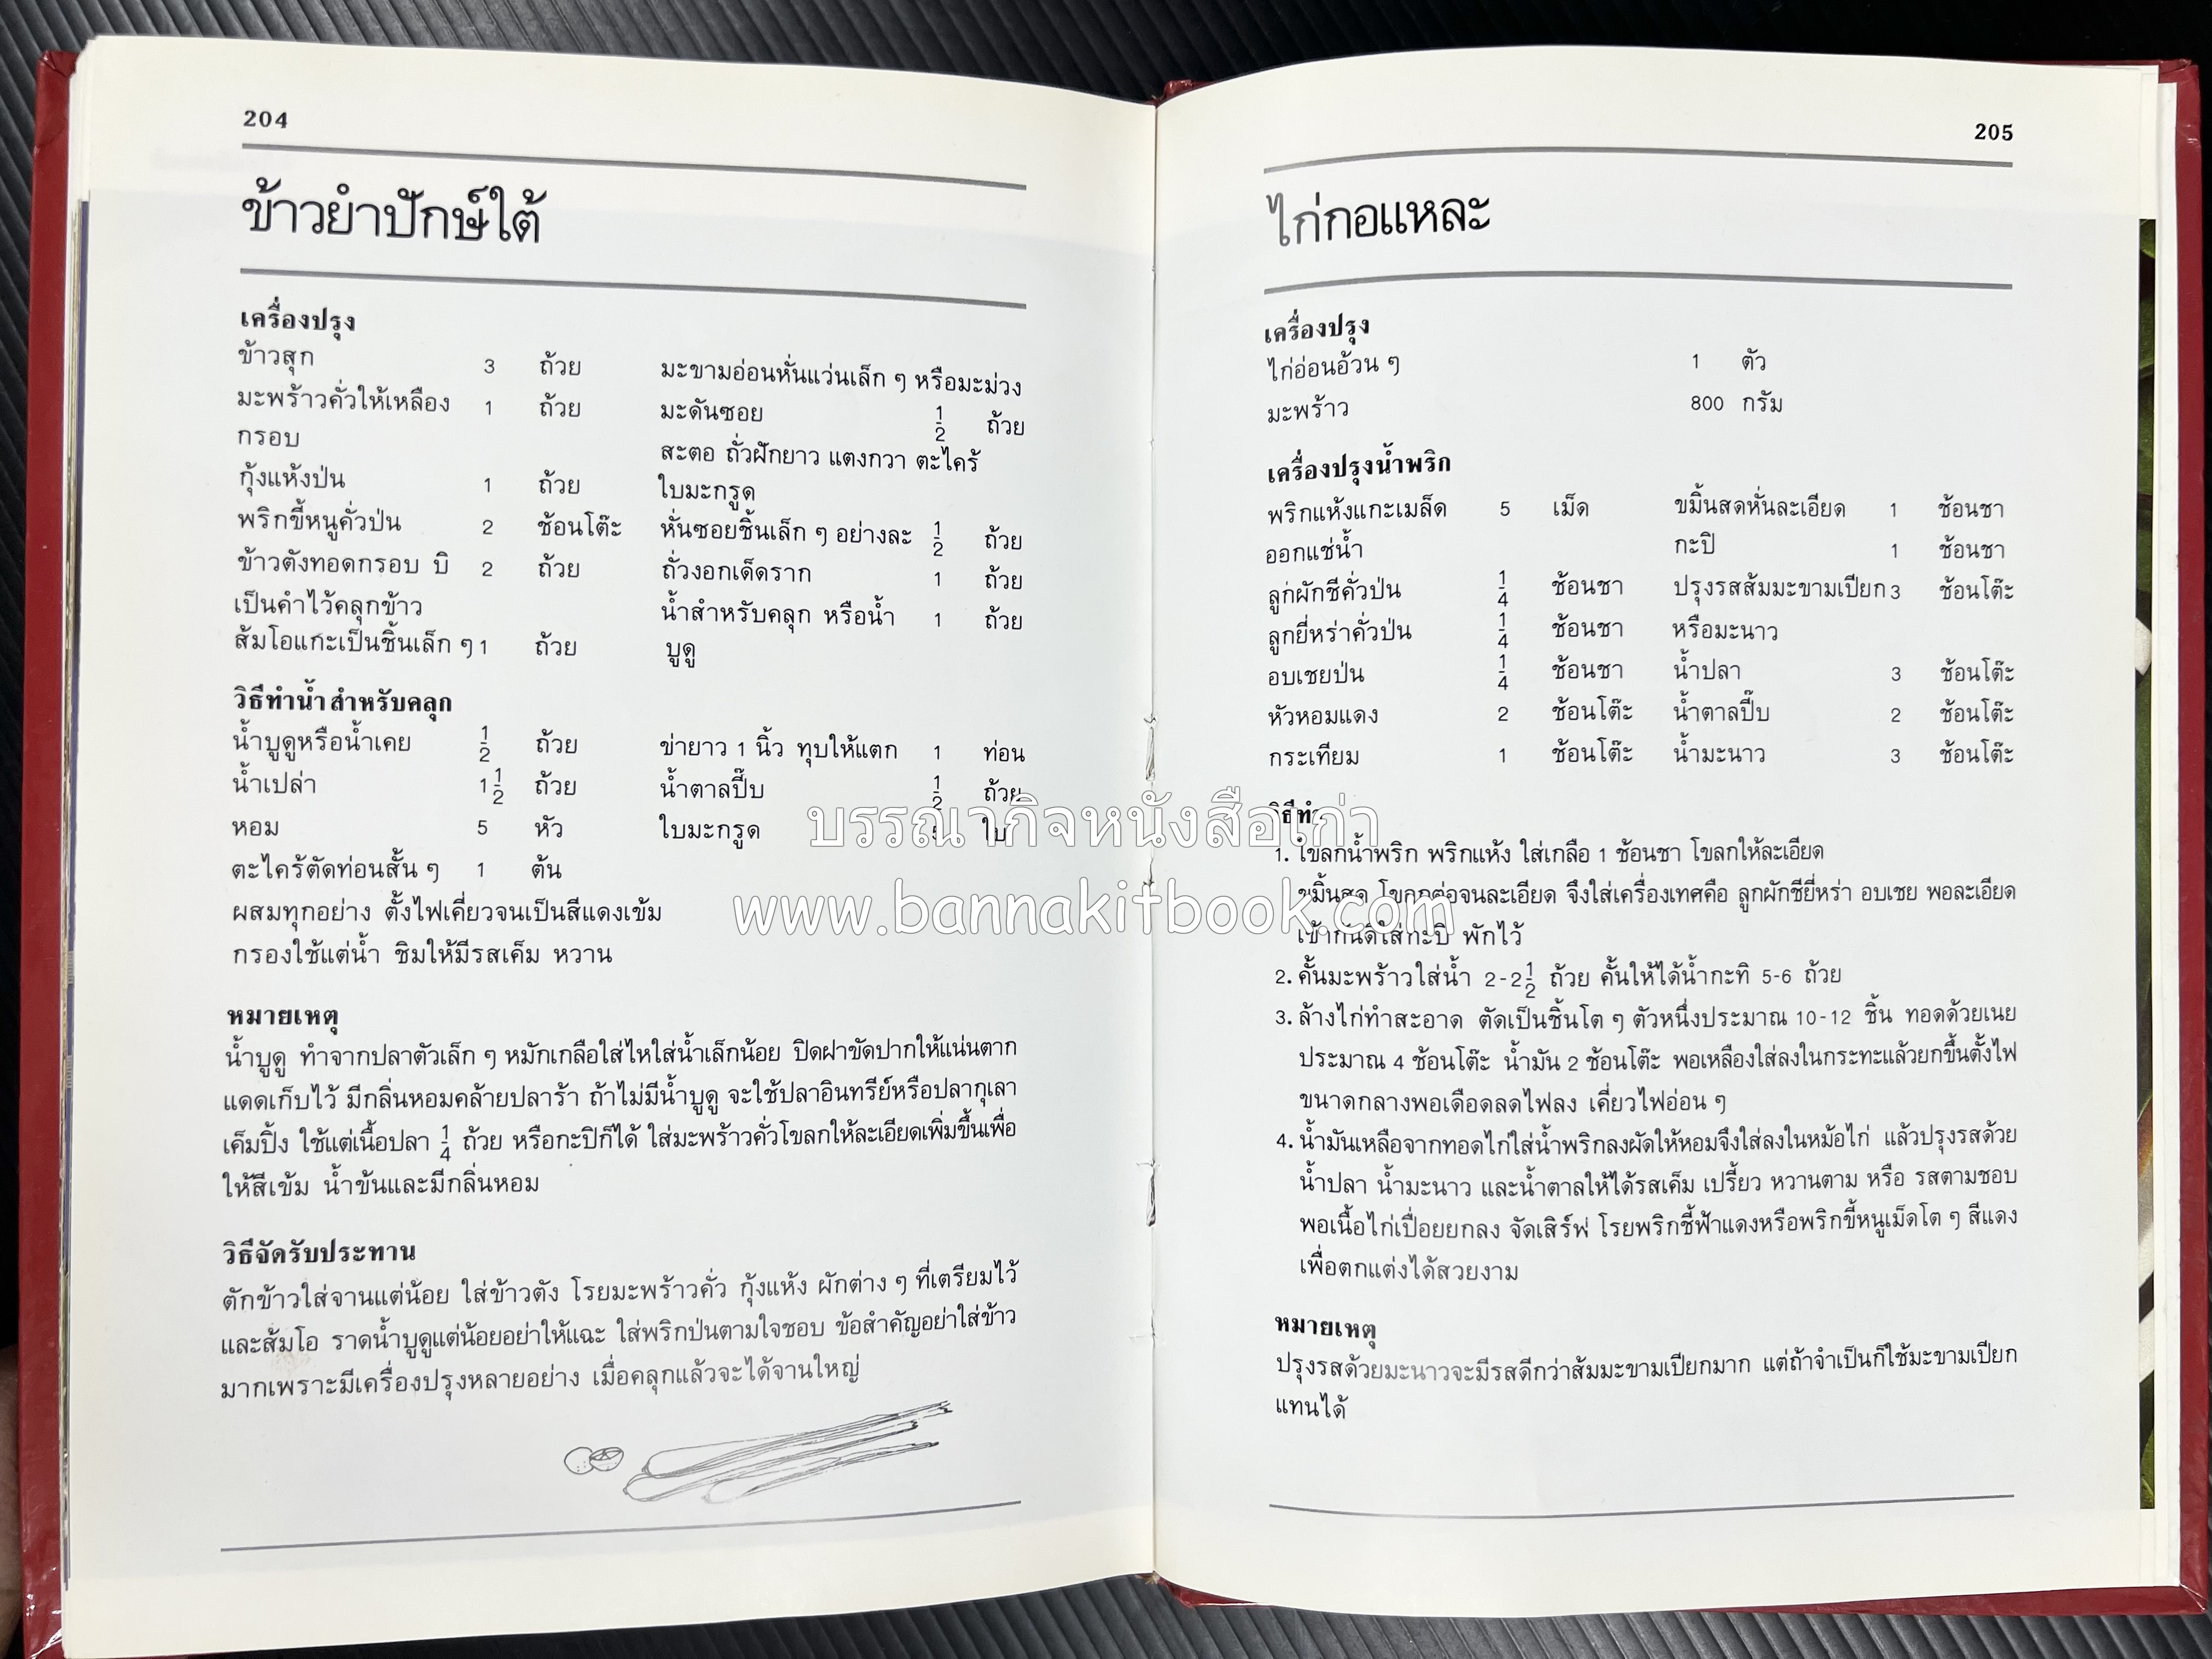 204
ข้าวยำปักษ์ใต้
เครื่องปรุง
ข้าวสุก 3 ถ้วย
มะพร้าวคั่วให้เหลือง 1 ถ้วย
กรอบ
กุ้งแห้งป่น 1 ถ้วย
พริกขี้หนูคั่วป่น 2 ช้อนโต๊ะ
ข้าวตังทอดกรอบ บิ 2 ถ้วย
เป็นคำไว้คลุกข้าว
ส้มโอแกะเป็นชิ้นเล็ก ๆ 1 ถ้วย
มะขามอ่อนหั่นแว่นเล็ก ๆ หรือมะม่วง
มะดันซอย 1/2 ถ้วย
สะตอ ถั่วฝักยาว แตงกวา ตะไคร้
ใบมะกรูด
หั่นซอยชิ้นเล็ก ๆ อย่างละ 1/2 ถ้วย
ถั่วงอกเด็ดราก 1 ถ้วย
น้ำสำหรับคลุก หรือน้ำ 1 ถ้วย
บูดู
วิธีทำน้ำสำหรับคลุก
น้ำบูดูหรือน้ำเคย 1/2 ถ้วย
น้ำเปล่า 1 1/2 ถ้วย
หอม 5 หัว
ตะไคร้ตัดท่อนสั้น ๆ 1 ต้น
ข่ายาว 1 นิ้ว ทุบให้แตก 1 ท่อน
น้ำตาลปี๊บ 1/2 ถ้วย
ใบมะกรูด ใบ
ผสมทุกอย่าง ตั้งไฟเคี่ยวจนเป็นสีแดงเข้ม
กรองใช้แต่น้ำ ชิมให้มีรสเค็ม หวาน
หมายเหตุ
น้ำบูดู ทำจากปลาตัวเล็ก ๆ หมักเกลือใส่ไหใส่น้ำเล็กน้อย ปิดฝาขัดปากให้แน่นตาก
แดดเก็บไว้ มีกลิ่นหอมคล้ายปลาร้า ถ้าไม่มีน้ำบูดู จะใช้ปลาอินทรีย์หรือปลากุเลา
เค็มปิ้ง ใช้แต่เนื้อปลา 1/4 ถ้วย หรือกะปิก็ได้ ใส่มะพร้าวคั่วโขลกให้ละเอียดเพิ่มขึ้นเพื่อ
ให้สีเข้ม น้ำข้นและมีกลิ่นหอม
วิธีจัดรับประทาน
ตักข้าวใส่จานแต่น้อย ใส่ข้าวตัง โรยมะพร้าวคั่ว กุ้งแห้ง ผักต่าง ๆ ที่เตรียมไว้
และส้มโอ ราดน้ำบูดูแต่น้อยอย่าให้แฉะ ใส่พริกป่นตามใจชอบ ข้อสำคัญอย่าใส่ข้าว
มากเพราะมีเครื่องปรุงหลายอย่าง เมื่อคลุกแล้วจะได้จานใหญ่
205
ไก่กอแหละ
เครื่องปรุง
ไก่อ่อนอ้วน ๆ 1 ตัว
มะพร้าว 800 กรัม
เครื่องปรุงน้ำพริก
พริกแห้งแกะเมล็ด 5 เม็ด
ออกแช่น้ำ
ลูกผักชีคั่วป่น 1/4 ช้อนชา
ลูกยี่หร่าคั่วป่น 1/4 ช้อนชา
อบเชยป่น 1/4 ช้อนชา
หัวหอมแดง 2 ช้อนโต๊ะ
กระเทียม 1 ช้อนโต๊ะ
ขมิ้นสดหั่นละเอียด 1 ช้อนชา
กะปิ 1 ช้อนชา
ปรุงรสส้มมะขามเปียก 3 ช้อนโต๊ะ
หรือมะนาว
น้ำปลา 3 ช้อนโต๊ะ
น้ำตาลปี๊บ 2 ช้อนโต๊ะ
น้ำมะนาว 3 ช้อนโต๊ะ
วิธีทำ
1. โขลกน้ำพริก พริกแห้ง ใส่เกลือ 1 ช้อนชา โขลกให้ละเอียด
ขมิ้นสด โขลกต่อจนละเอียด จึงใส่เครื่องเทศคือ ลูกผักชียี่หร่า อบเชย พอละเอียด
เข้ากันดีใส่กะปิ พักไว้
2. คั้นมะพร้าวใส่น้ำ 2-2 1/2 ถ้วย คั้นให้ได้น้ำกะทิ 5-6 ถ้วย
3. ล้างไก่ทำสะอาด ตัดเป็นชิ้นโต ๆ ตัวหนึ่งประมาณ 10-12 ชิ้น ทอดด้วยเนย
ประมาณ 4 ช้อนโต๊ะ น้ำมัน 2 ช้อนโต๊ะ พอเหลืองใส่ลงในกระทะแล้วยกขึ้นตั้งไฟ
ขนาดกลางพอเดือดลดไฟลง เคี่ยวไฟอ่อน ๆ
4. น้ำมันเหลือจากทอดไก่ใส่น้ำพริกลงผัดให้หอมจึงใส่ลงในหม้อไก่ แล้วปรุงรสด้วย
น้ำปลา น้ำมะนาว และน้ำตาลให้ได้รสเค็ม เปรี้ยว หวานตาม หรือ รสตามชอบ
พอเนื้อไก่เปื่อยยกลง จัดเสิร์ฟ โรยพริกชี้ฟ้าแดงหรือพริกขี้หนูเม็ดโต ๆ สีแดง
เพื่อตกแต่งได้สวยงาม
หมายเหตุ
ปรุงรสด้วยมะนาวจะมีรสดีกว่าส้มมะขามเปียกมาก แต่ถ้าจำเป็นก็ใช้มะขามเปียก
แทนได้
บรรณากิจหนังสือเก่า
www.bannakitbook.com